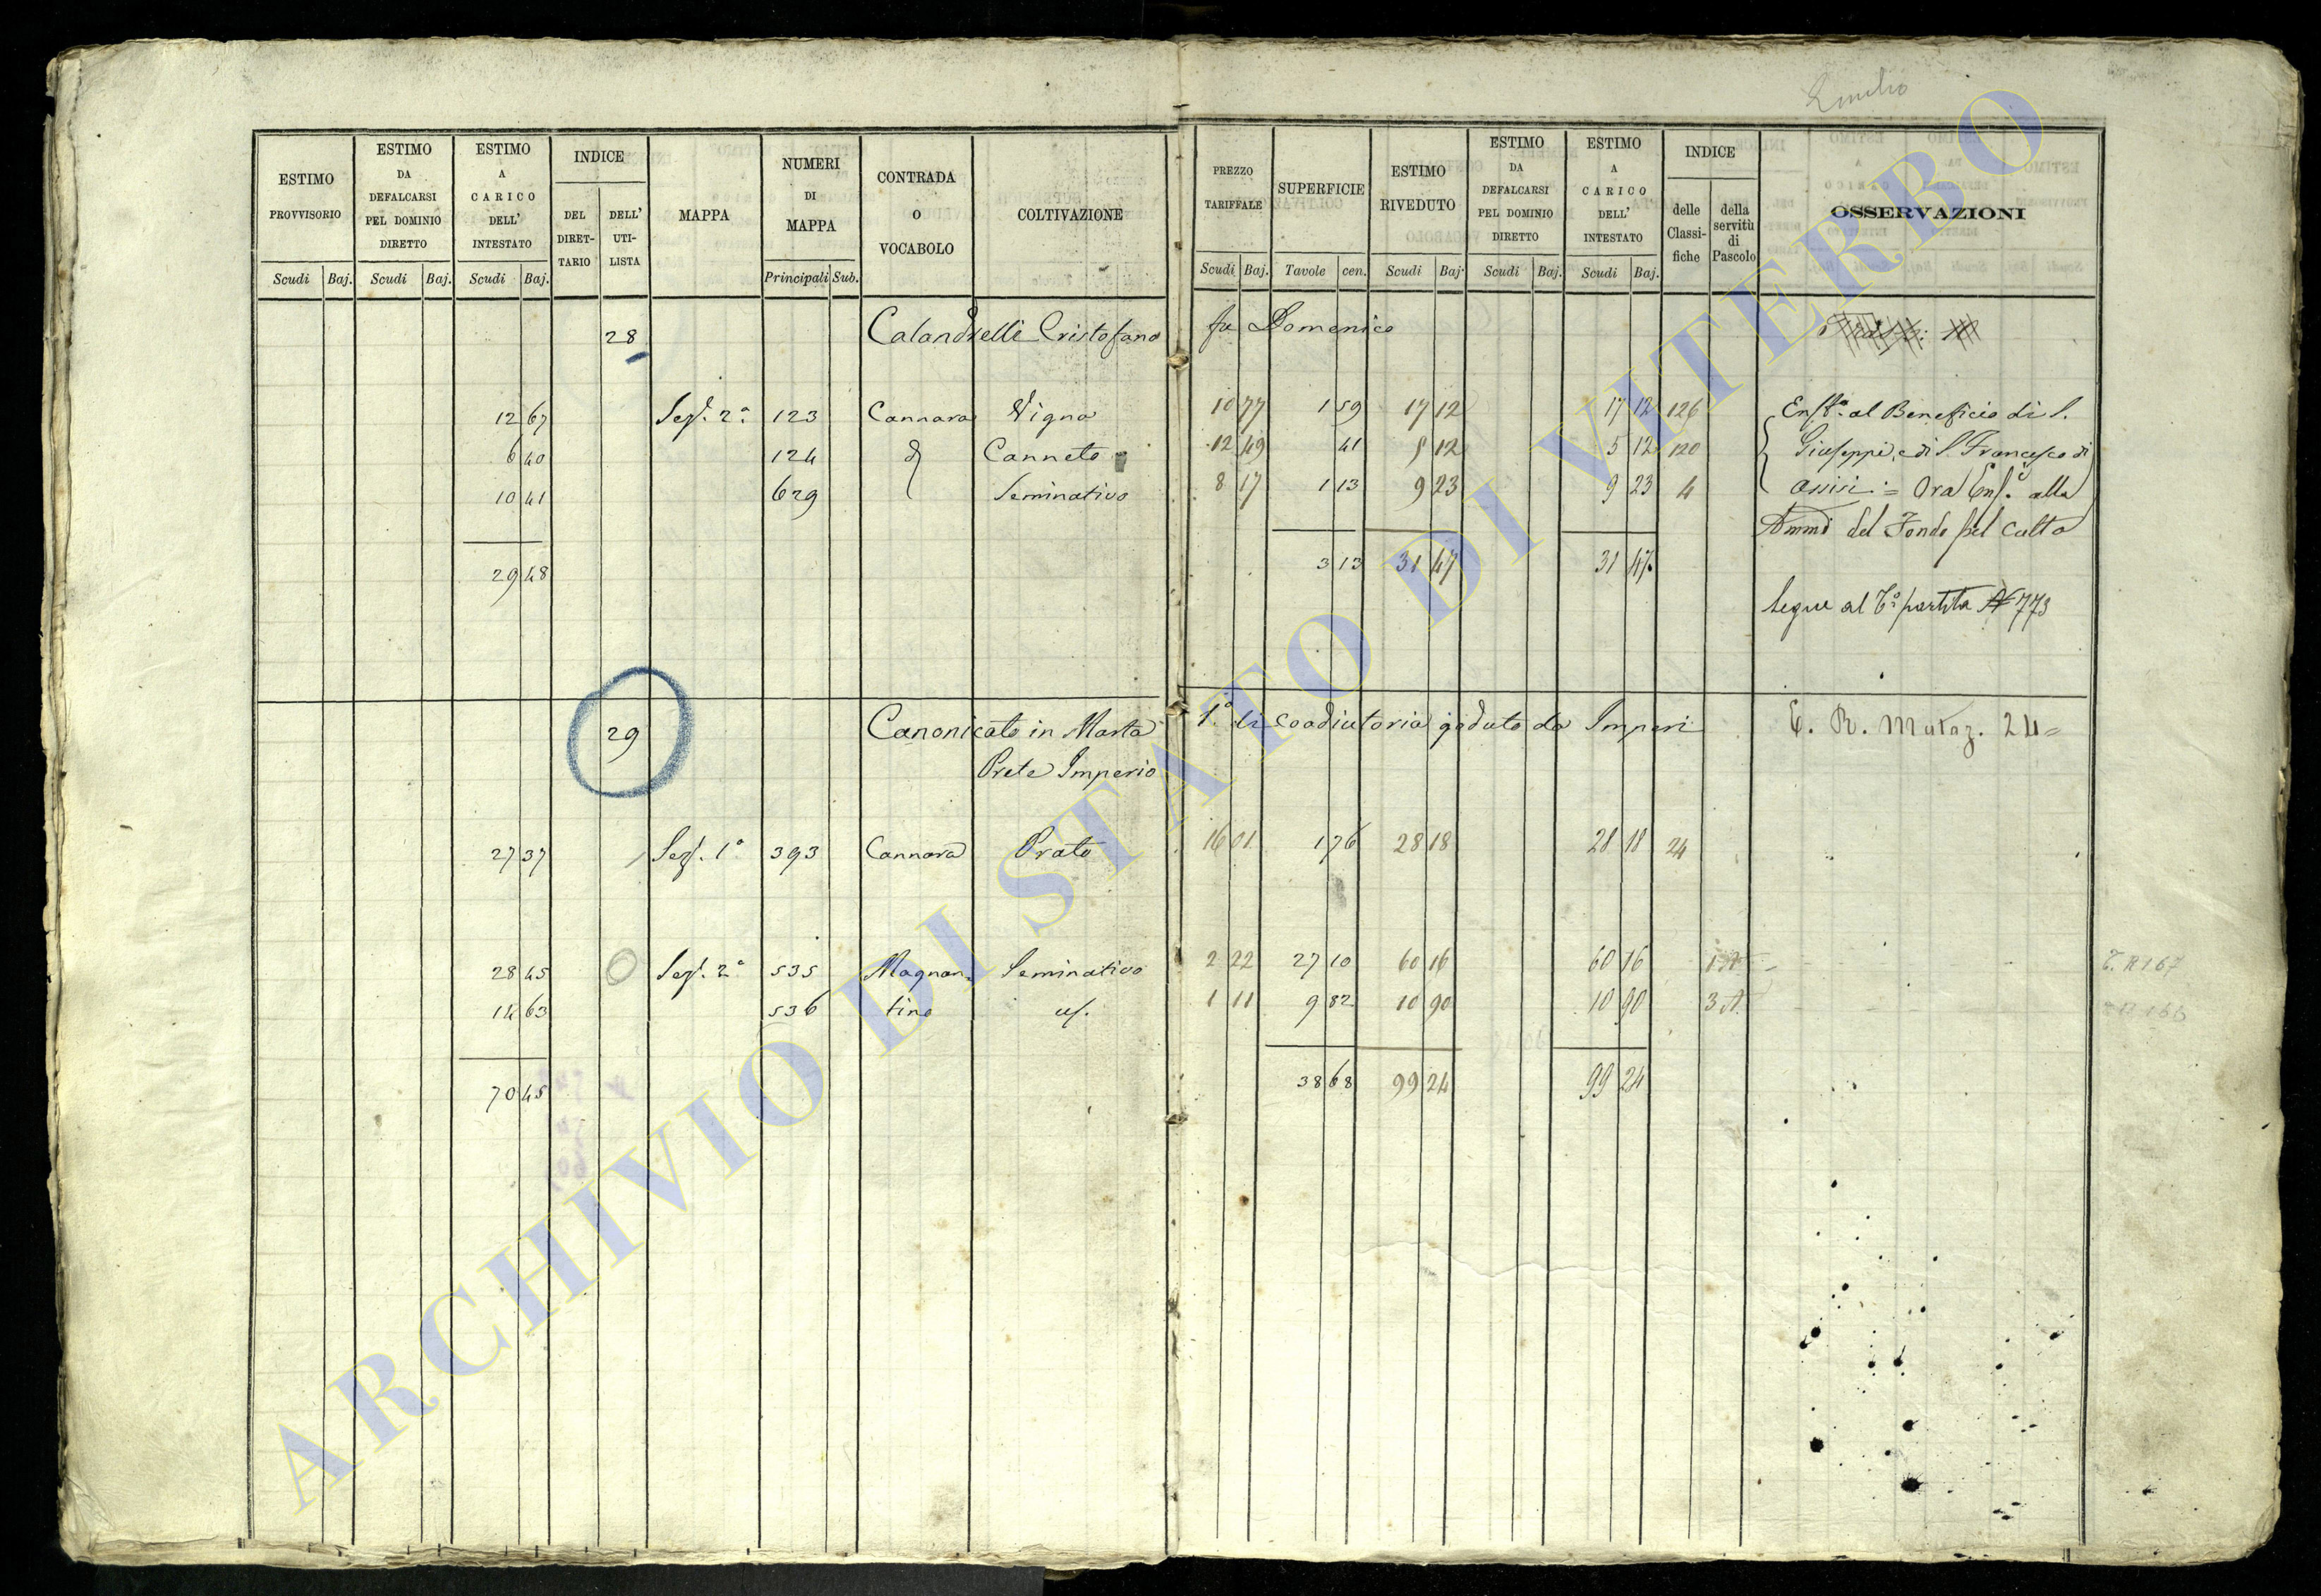 ESTIMO PROVVISORIO
ESTIMO DA DEFALCARSI PEL DOMINIO DIRETTO
ESTIMO A CARICO DELL' INTESTATO
INDICE
DEL DIRET-TARIO
DELL' UTI-LISTA
MAPPA
NUMERI DI MAPPA
CONTRADA O VOCABOLO
COLTIVAZIONE
PREZZO TARIFFALE
SUPERFICIE
ESTIMO RIVEDUTO
ESTIMO DA DEFALCARSI PEL DOMINIO DIRETTO
ESTIMO A CARICO DELL' INTESTATO
INDICE
delle Classi-fiche
della servitù di Pascolo
OSSERVAZIONI
Scudi Baj. Scudi Baj. Scudi Baj. Principali Sub. Scudi Baj. Tavole cen. Scudi Baj. Scudi Baj. Scudi Baj.
28 Calandrelli Cristofano fu Domenico
12 67 Sez. 2a 123 Cannara Vigna 10 77 1 59 17 12 17 12 126 Enfta al Beneficio di S.
6 40 124 Canneto 12 49 41 5 12 5 12 120 Giuseppe, e di S. Francesco di
10 41 629 Seminativo 8 17 1 13 9 23 9 23 4 Assisi = Ora Enf. alla
Ammi del Fondo pel Culto
29 48 3 13 31 47 31 47
Segue alTo partita N 773
29 Canonicato in Marta 1o di Coadiutoria goduto da Imperi T. R. Mutaz. 24=
Prete Imperio
27 37 Sez. 1a 393 Cannara Prato 16 01 1 76 28 18 28 18 24
28 45 Sez. 2a 535 Magnan- Seminativo 2 22 27 10 60 16 60 16 T. R 167
14 63 536 tino id. 1 11 9 82 10 90 10 90 3 A.
70 45 38 68 99 24 99 24
ARCHIVIO DI STATO DI VITERBO